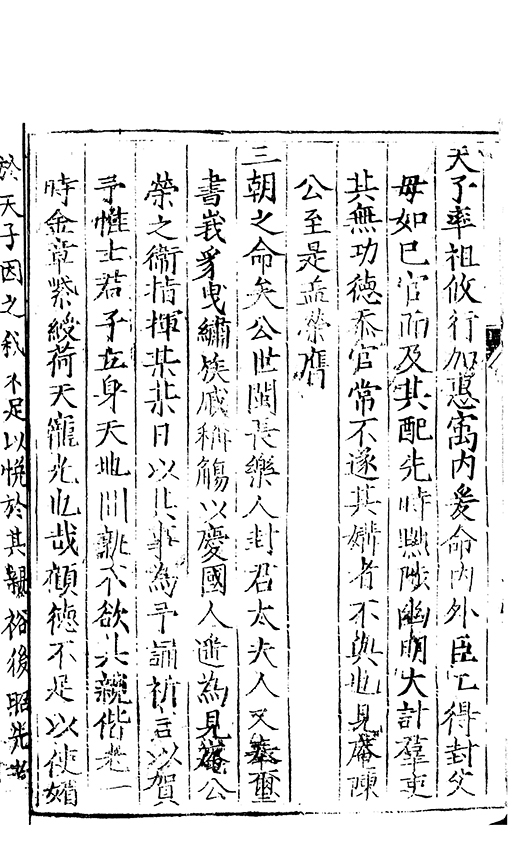 天子率祖攸行加惠寓内爰命内外臣工得封父
母如已官而及其配先時黜陟幽明大計羣吏
其無功德忝官常不遂其職者不與也見庵陳
公至是益榮膺
三朝之命矣公世閩長樂人封君太夫人又奉璽
書峩豸曳繡族戚稱觴以慶國人遞為見菴公
榮之衛指揮某某日以其事為予誦祈言以賀
予惟士君子立身天地間孰不欲其親偕老一
時金章紫綬荷天寵光也哉顧德不足以使媚
於天子因之我不足以悅於其親裕後昭先者